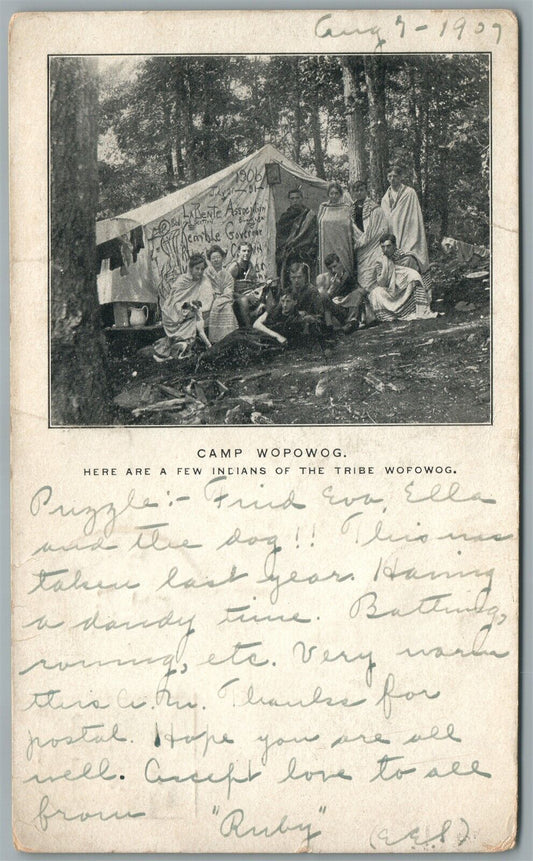 Aug 7 - 1907
1906
La Bente
Governor
CAMP WOPOWOG.
HERE ARE A FEW INDIANS OF THE TRIBE WOFOWOG.
Puzzle:- Find Eva, Ella
and the dog!! This was
taken last year. Having
a dandy time. Bathing,
rowing, etc. Very warm
this A.M. Thanks for
postal. Hope you are all
well. Accept love to all
from "Ruby"